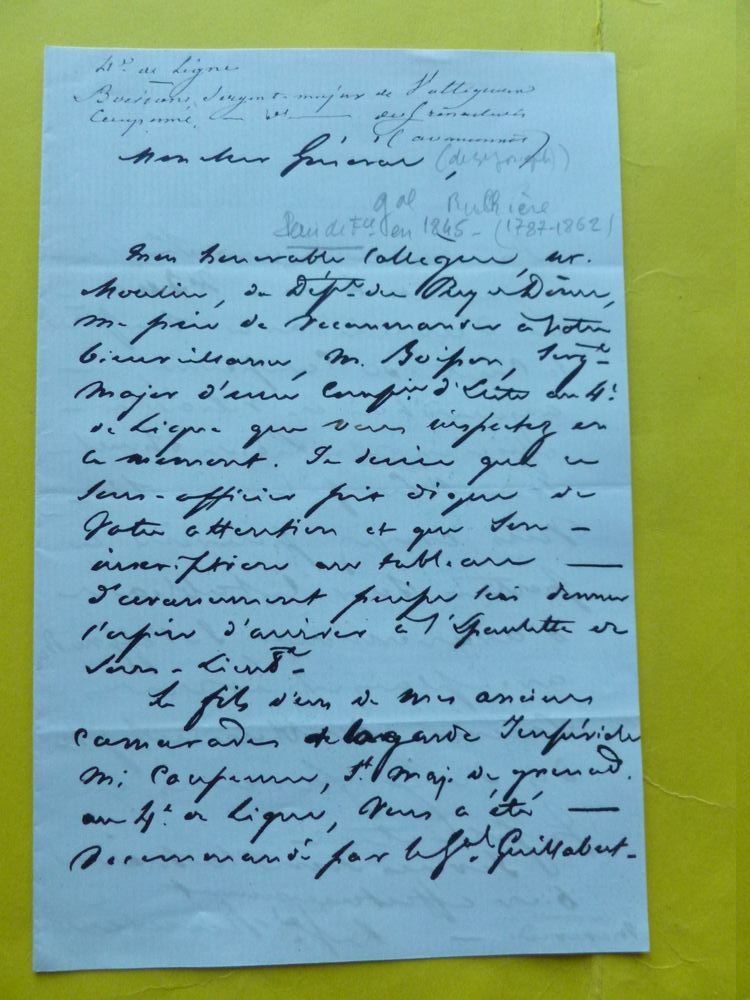 4e de Ligne
Boisson, Sergent-major de Voltigeurs
Coupenne, — id — des Grenadiers
Mon cher Général,
gal Rulhière
Pair de Fce en 1845 - (1787-1862)
Mon honorable Collègue, Mr.
Moulin, du Dépt. du Puy de Dôme,
me prie de recommander à votre
bienveillance, M. Boisson, Sergt-
Major d'une Compie d'Elite au 4e
de Ligne que vous inspectez en
ce moment. Je désire que ce
sous-officier soit digne de
votre attention et que son -
inscription au tableau —
d'avancement puisse lui donner
l'espoir d'arriver à l'Epaulette de
Sous-Lieut.
Le fils d'un de mes anciens
camarades de la garde Impériale
M. Coupenne, St. Maj. de grenad.
au 4e de Ligne, vous a été —
recommandé par le Gal. Guillabert-